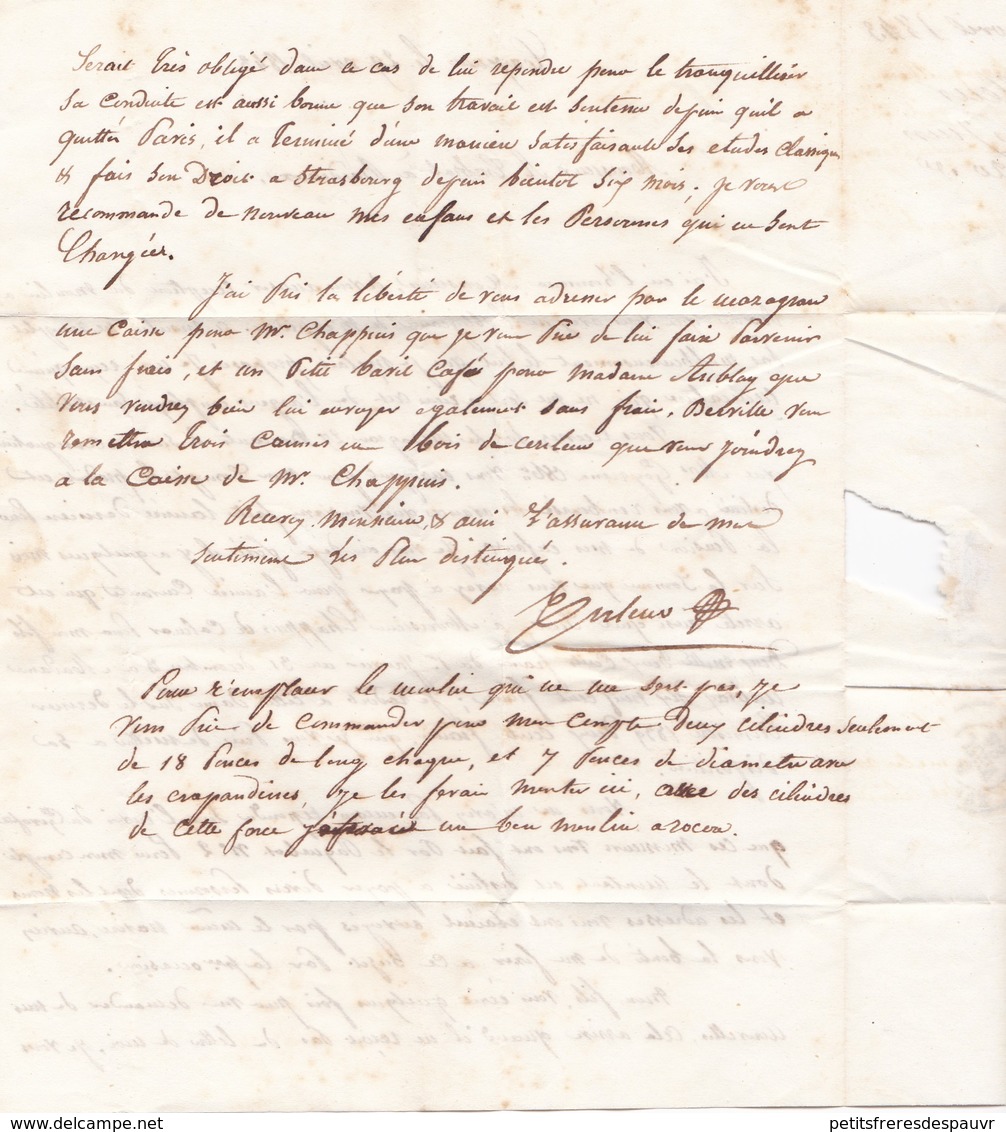 Serait très obligé dans ce cas de lui repondre pour le tranquilliser
sa conduite est aussi bonne que son travail est soutenu depuis quil a
quitté Paris, il a Terminé d'une maniere satisfaisante ses etudes classiques
& fais son Droit a Strasbourg depuis bientot six mois. je vous
recommande de nouveau mes enfans et les Personnes qui en sont
Chargées.
J'ai Pris la liberté de vous adresser par le mazagran
une Caisse pour Mr. Chappuis que je vous Prie de lui faire Parvenir
sans frais, et un Petit baril Café pour Madame Aublay que
vous voudrez bien lui envoyer egalement sans frais, Belville vous
remettra trois Cannes en bois de couleur que vous joindrez
a la Caisse de Mr. Chappuis.
Recevez, Monsieur & ami L'assurance de mes
sentimens les Plus distingués.
Pour remplacer le moulin qui ne me sert pas, je
vous Prie de commander pour mon compte deux cilindres seulement
de 18 Pouces de long chaque, et 7 Pouces de diametre avec
les crapaudines, je les ferai monter ici, avec des cilindres
de cette force un bon moulin a rocou.
petitsfreresdespauvr